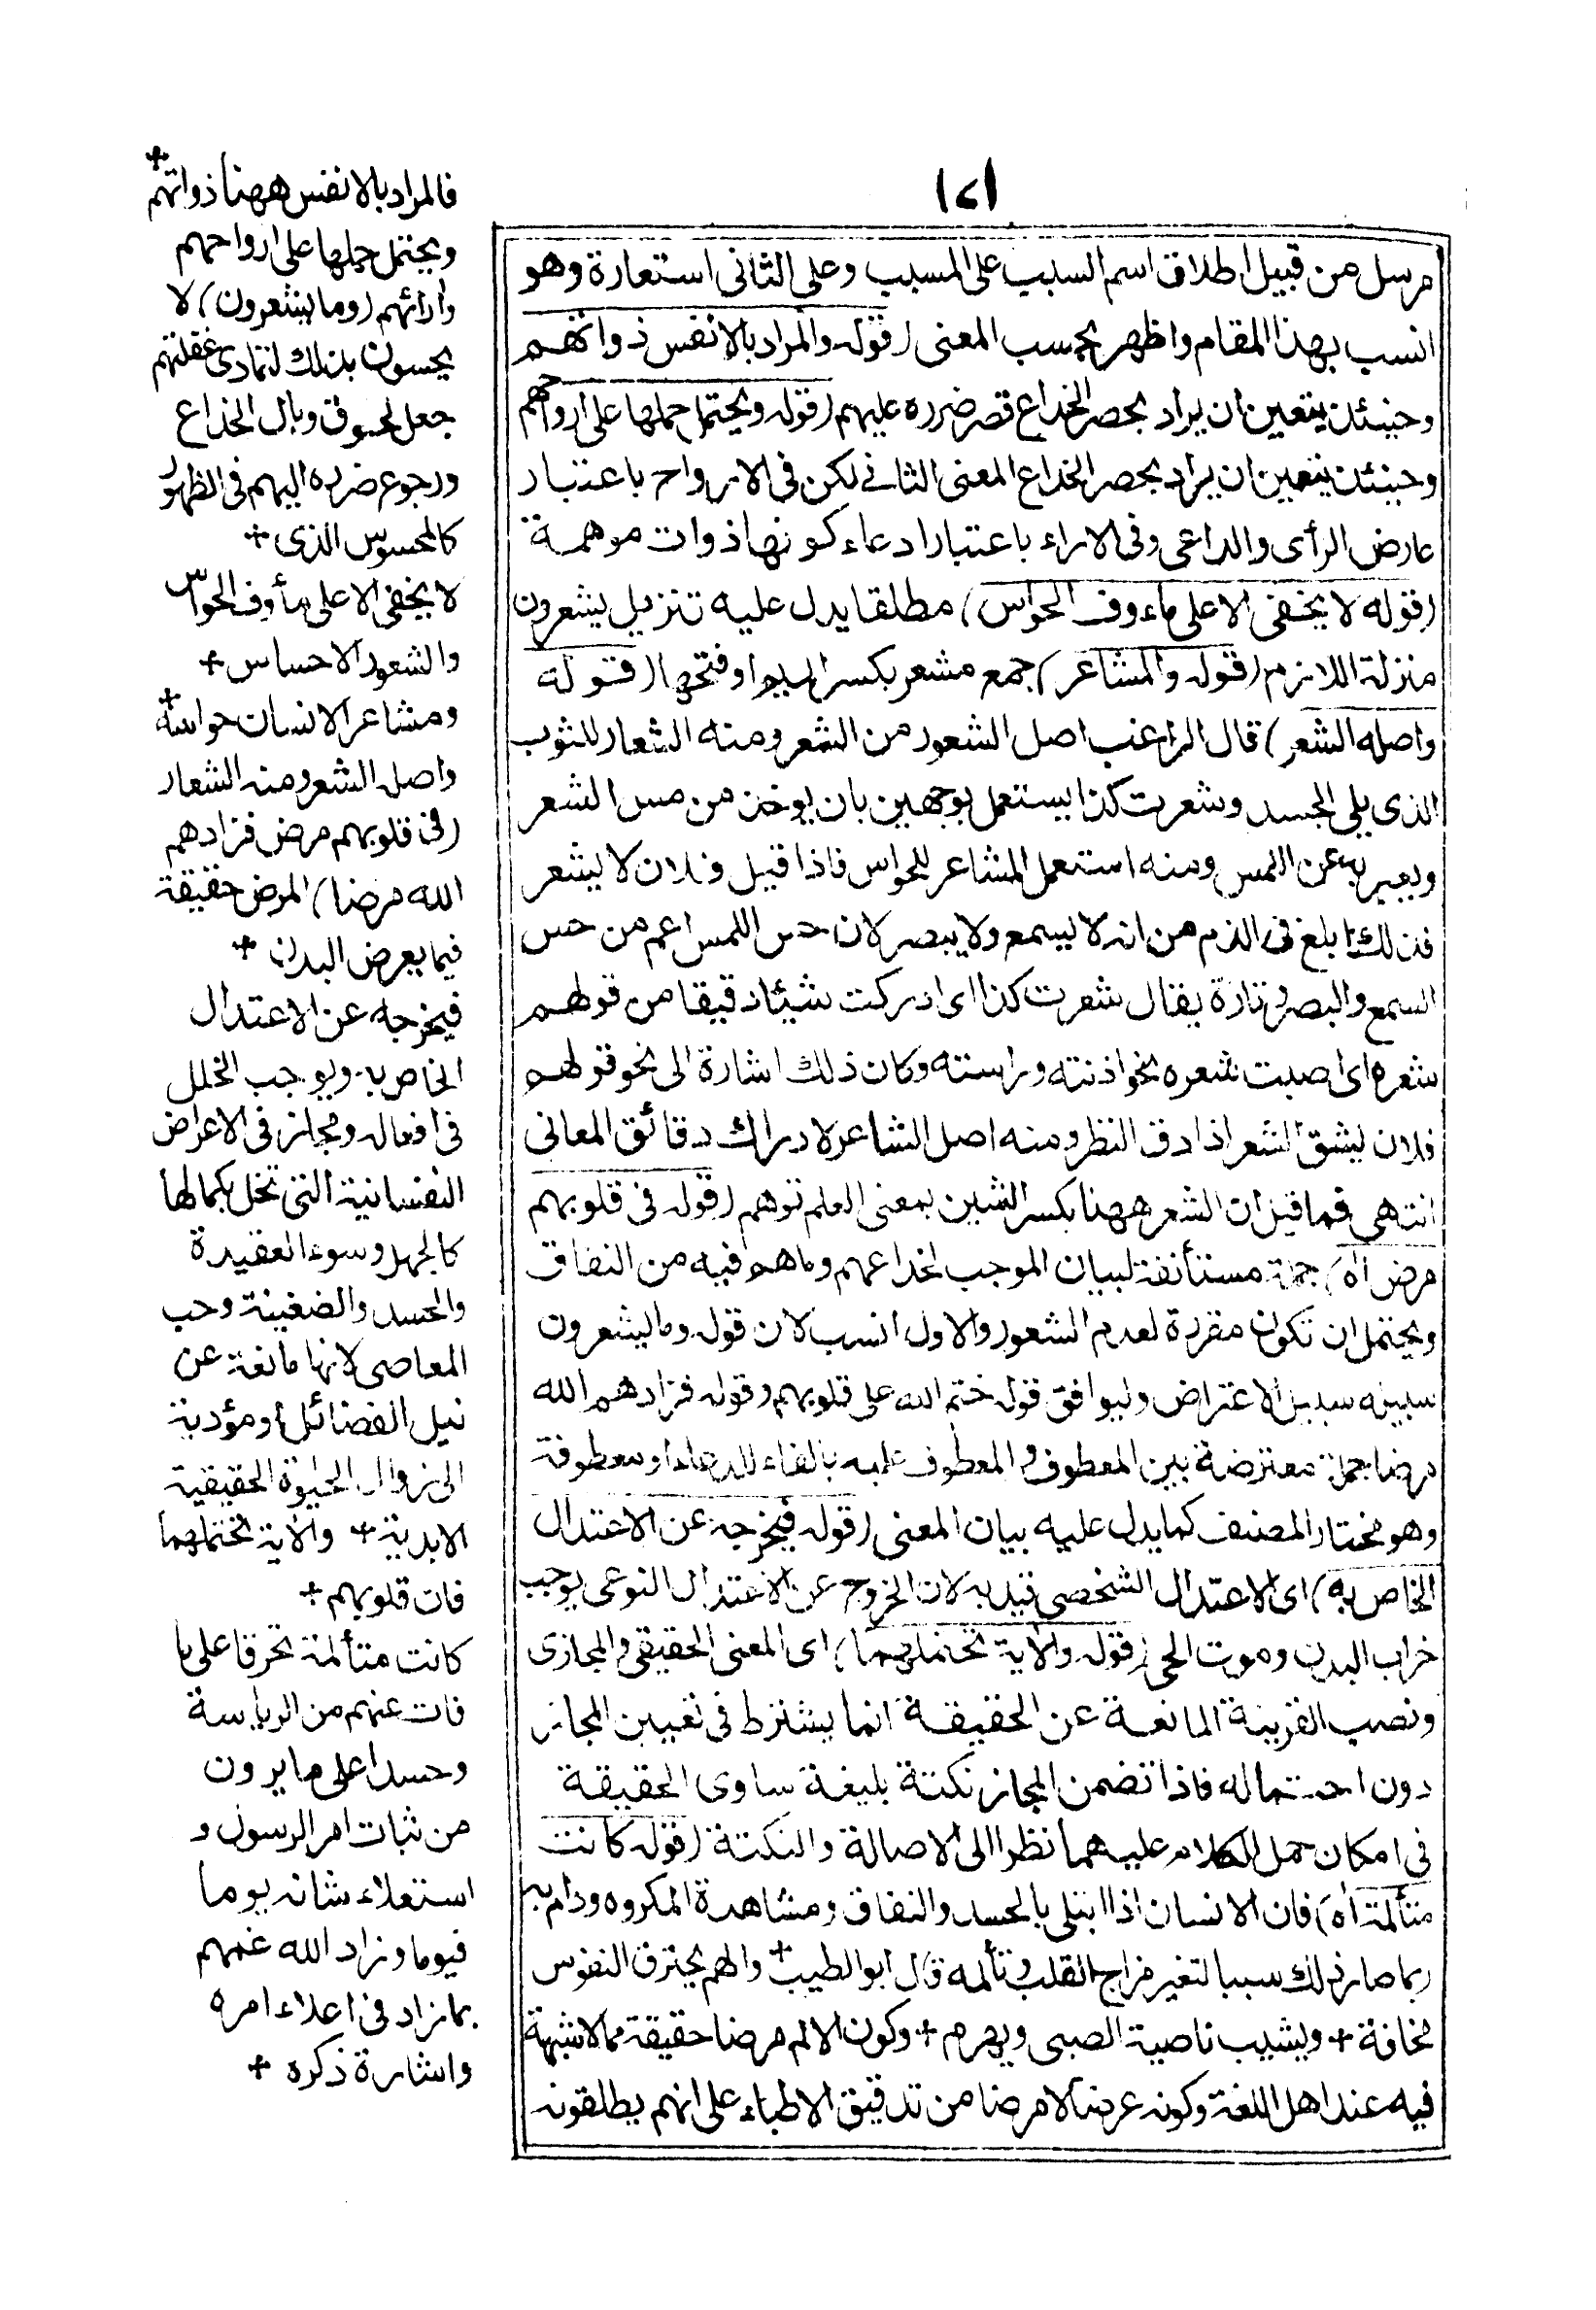 ١٧١
مرسل من قبيل اطلاق اسم السبب على المسبب وعلى الثانى استعارة وهو
انسب بهذا المقام واظهر بحسب المعنى (قوله والمراد بالانفس ذواتهم
وحينئذ يتعين ان يراد بحصر الخداع قصر ضرره عليهم (قوله ويحتمل حملها على ارواحهم
وحينئذ يتعين ان يراد بحصر الخداع المعنى الثانے لكن فى الارواح باعتبار
عارض الرأى والداعى وفى الاراء باعتبار ادعاء كونها ذوات موهمة
(قوله لا يخفى الا على ماءوف الحواس) مطلقا يدل عليه تنزيل يشعرون
منزلة اللازم (قوله والمشاعر) جمع مشعر بكسر الميم او فتحها (قوله
واصله الشعر) قال الراغب اصل الشعور من الشعر ومنه الشعار للثوب
الذى يلى الجسد وشعرت كذا يستعمل بوجهين بان يوخذ من مس الشعر
ويعبر به عن اللمس ومنه استعمل المشاعر للحواس فاذا قيل فلان لا يشعر
فذلك ابلغ فى الذم من انه لا يسمع ولا يبصر لان حس اللمس اعم من حس
السمع والبصر وتارة يقال شعرت كذا اى ادركت شيئا دقيقا من قولهم
شعره اى اصبت شعره نحو اذنته وراسته وكان ذلك اشارة الى نحو قولهم
فلان يشق الشعر اذا دق النظر ومنه اصل الشاعر لادراك دقائق المعانى
انتهى فما قيل ان الشعر ههنا بكسر الشين بمعنى العلم توهم (قوله فى قلوبهم
مرض اه) جملة مستأنفة لبيان الموجب لخداعهم وما هم فيه من النفاق
ويحتمل ان تكون مقررة لعدم الشعور والاول انسب لان قوله وما يشعرون
سبيله سبيل الاعتراض وليوافق قوله ختم الله على قلوبهم وقوله فزادهم الله
مرضا جملة معترضة بين المعطوف والمعطوف عليه بالفاء للدعاء او معطوفة
وهو مختار المصنف كما يدل عليه بيان المعنى (قوله فيخرجه عن الاعتدال
الخاص به) اى الاعتدال الشخصى قيد به لان الخروج عن الاعتدال النوعى يوجب
خراب البدن وموت الحى (قوله والاية تحتملهما) اى المعنى الحقيقى والمجازى
ونصب القرينة المانعة عن الحقيقة انما يشترط فى تعيين المجاز
دون احتماله فاذا تضمن المجاز نكتة بليغة ساوى الحقيقة
فى امكان حمل الكلام عليهما نظرا الى الاصالة والنكتة (قوله كانت
متألمة اه) فان الانسان اذا ابتلى بالحسد والنفاق ومشاهدة المكروه ودام به
ربما صار ذلك سببا لتغير مزاج القلب وتألمه قال ابو الطيب + والهم يخترق النفوس
مخافة + ويشيب ناصية الصبى ويهرم + وكون الالم مرضا حقيقة مما لا شبهة
فيه عند اهل اللغة وكونه عرضا لا مرضا من تدقيق الاطباء على انهم يطلقونه
فالمراد بالانفس ههنا ذواتهم +
ويحتمل حملها على ارواحهم
وارائهم (وما يشعرون) لا
يحسون بذلك لتمادى غفلتهم
جعل لحوق وبال الخداع
ورجوع ضرره اليهم فى الظهور
كالمحسوس الذى +
لا يخفى الا على مأوف الحواس
والشعور الاحساس +
ومشاعر الانسان حواسه +
واصله الشعر ومنه الشعار
(فى قلوبهم مرض فزادهم
الله مرضا) المرض حقيقة
فيما يعرض البدن +
فيخرجه عن الاعتدال
الخاص به ويوجب الخلل
فى افعاله ومجاز فى الاعراض
النفسانية التى تخل بكمالها
كالجهل وسوء العقيدة
والحسد والضغينة وحب
المعاصى لانها مانعة عن
نيل الفضائل او مؤدية
الى زوال الحيوة الحقيقية
الابدية + والاية تحتملهما
فان قلوبهم +
كانت متألمة تحرقا على ما
فات عنهم من الرياسة
وحسدا على ما يرون
من ثبات امر الرسول و
استعلاء شانه يوما
فيوما وزاد الله غمهم
بما زاد فى اعلاء امره
واشارة ذكره +